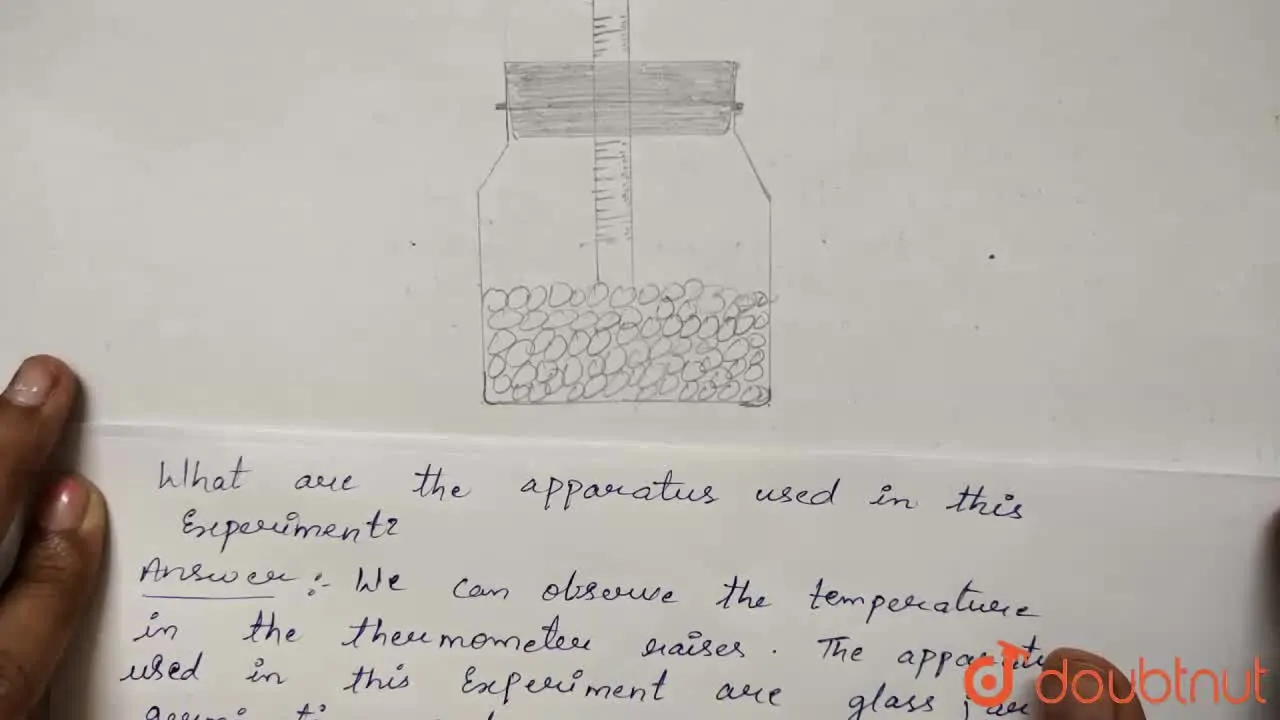 What are the apparatus used in this
Experiment?
Answer :- We can observe the temperature
in the thermometer raises. The
used in this Experiment are glass jar
doubtnut